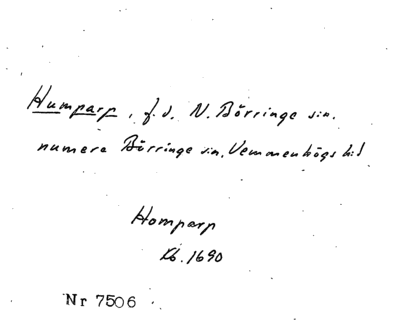 Humparp, f.d. N. Börringe sn.
numera Börringe sn, Vemmenhögs hd
Homparp
Kb. 1690
Nr 7506